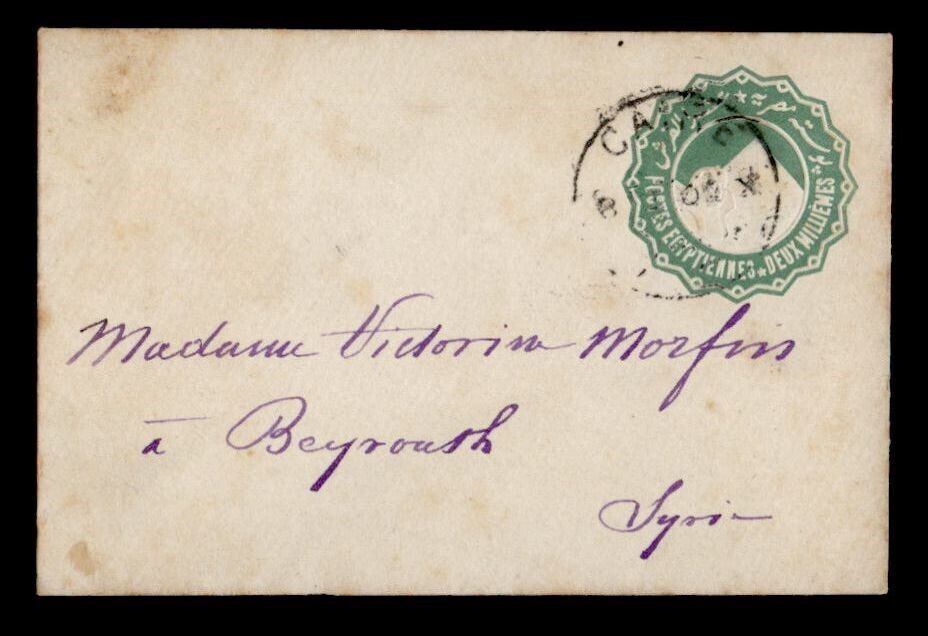 CAIRE
POSTES EGYPTIENNES ★ DEUX MILLIEMES
Madame Victorine Morfin
à Beyrouth
Syrie